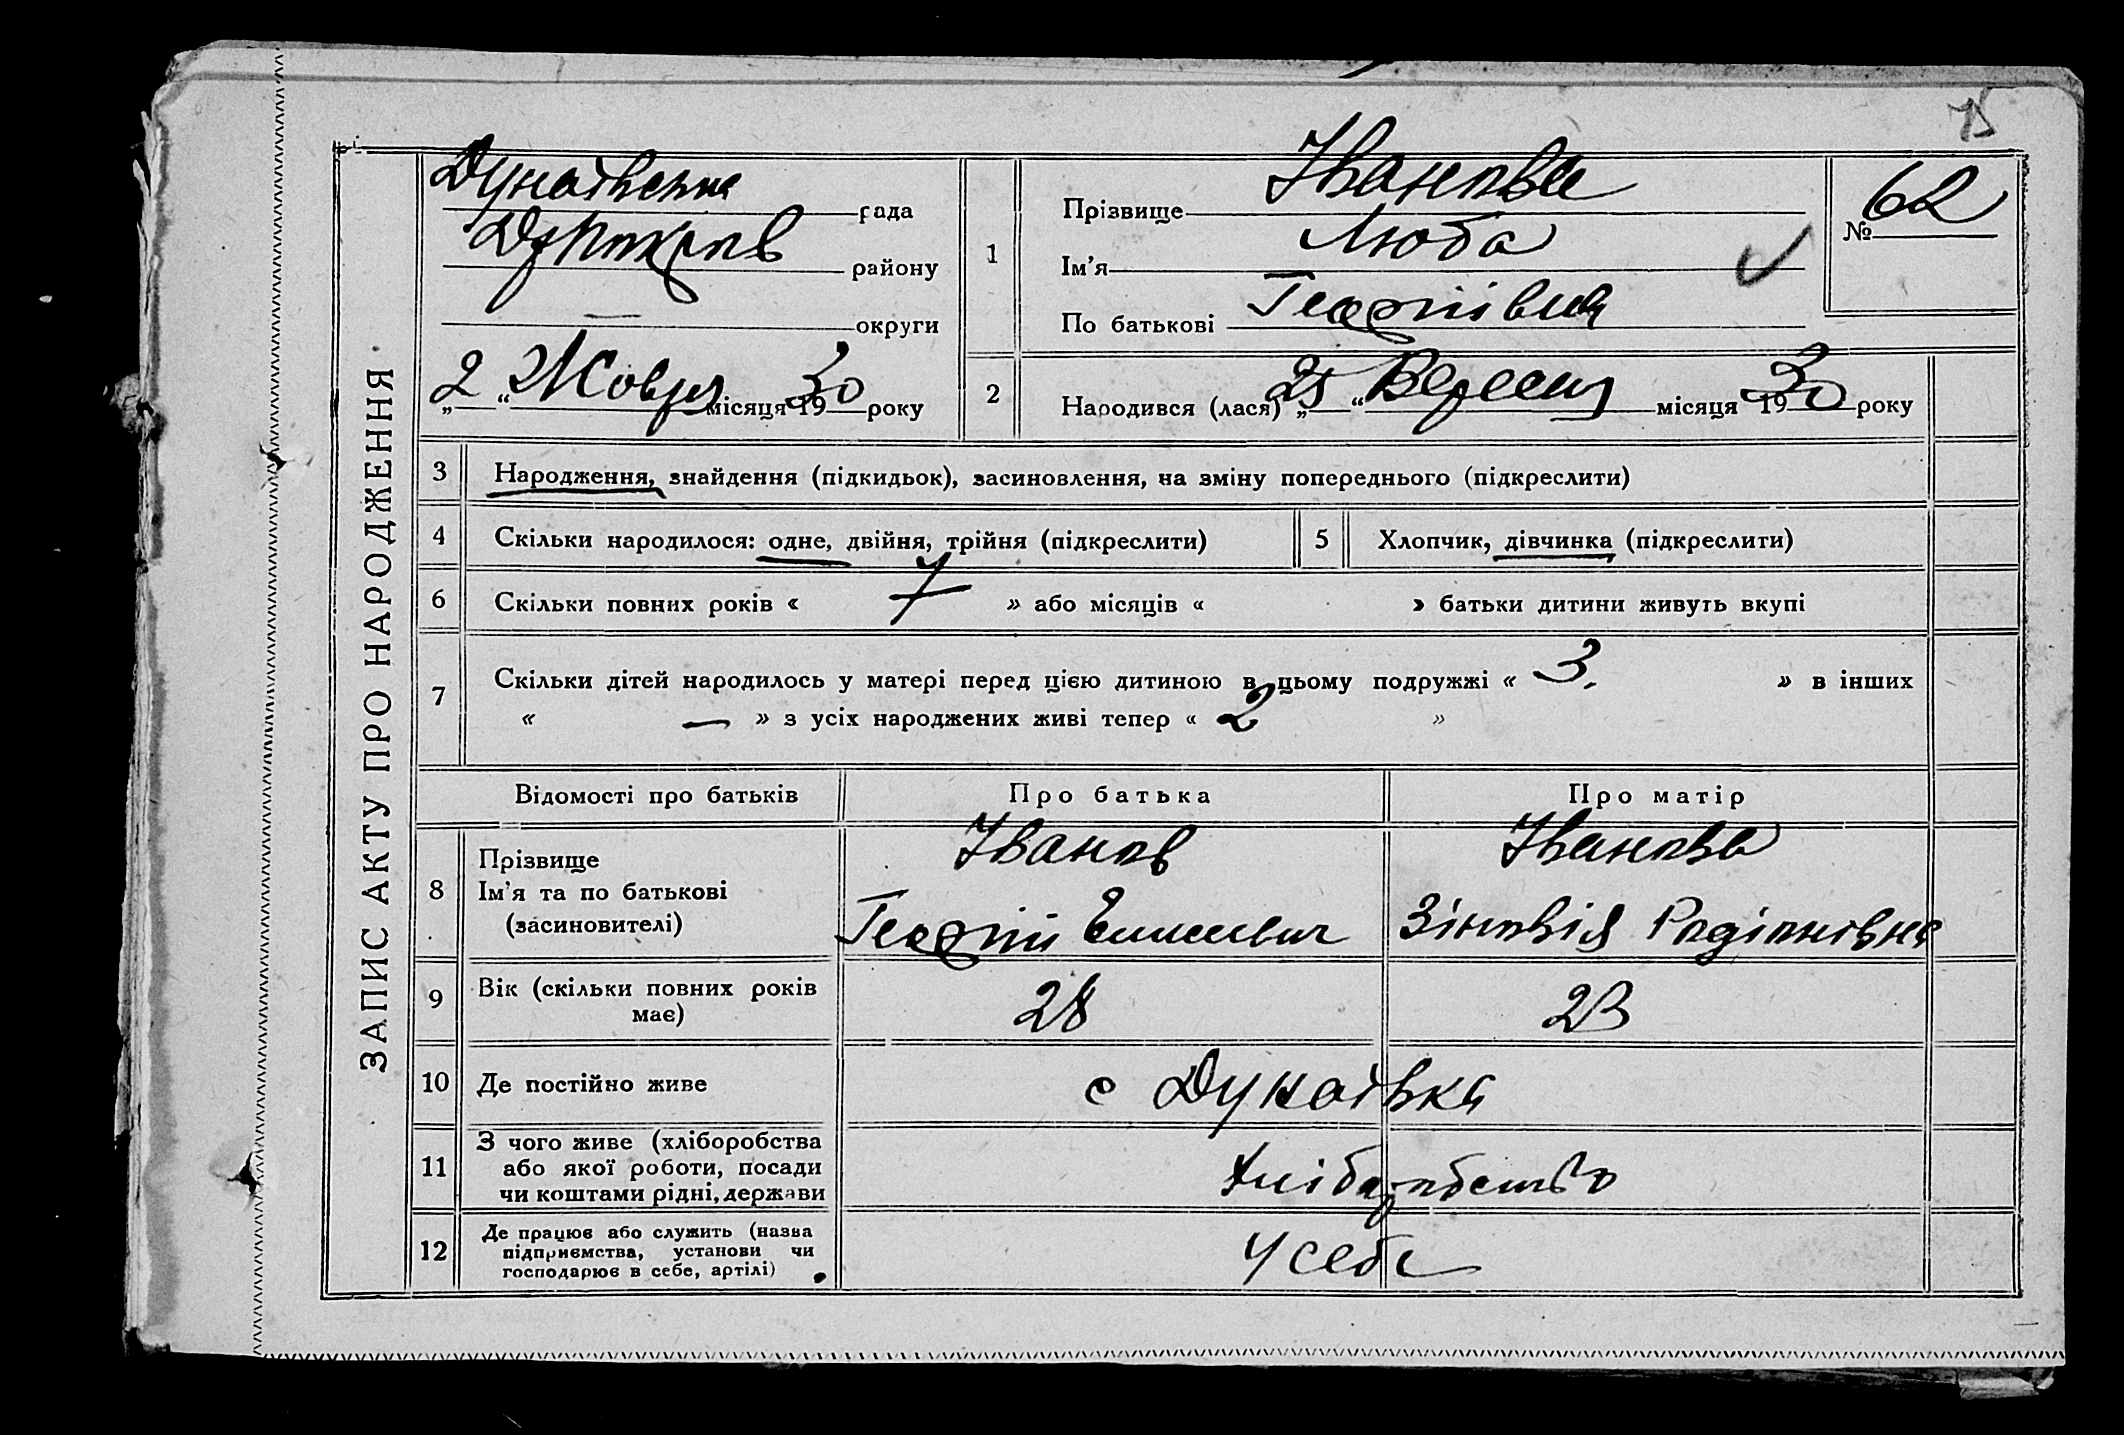 75
ЗАПИС АКТУ ПРО НАРОДЖЕННЯ
Дунаївська рада
району
— округи
„2“ Жовтня місяця 1930 року
1
Прізвище Іванова
Ім'я Люба
По батькові Георгіївна
№ 62
2
Народився (лася) „25“ Вересня місяця 1930 року
3 Народження, знайдення (підкидьок), засиновлення, на зміну попереднього (підкреслити)
4 Скільки народилося: одне, двійня, трійня (підкреслити) 5 Хлопчик, дівчинка (підкреслити)
6 Скільки повних років « 7 » або місяців « » батьки дитини живуть вкупі
7 Скільки дітей народилось у матері перед цією дитиною в цьому подружжі « 3. » в інших
« — » з усіх народжених живі тепер « 2 »
Відомості про батьків Про батька Про матір
8 Прізвище
Ім'я та по батькові
(засиновителі)
Іванов
Георгій
Іванова
Зіновія Родіоновна
9 Вік (скільки повних років
має)
28 23
10 Де постійно живе с Дунаївка
11 З чого живе (хліборобства
або якої роботи, посади
чи коштами рідні, держави
Хліборобство
12 Де працює або служить (назва
підприємства, установи чи
господарює в себе, артілі)
У себе